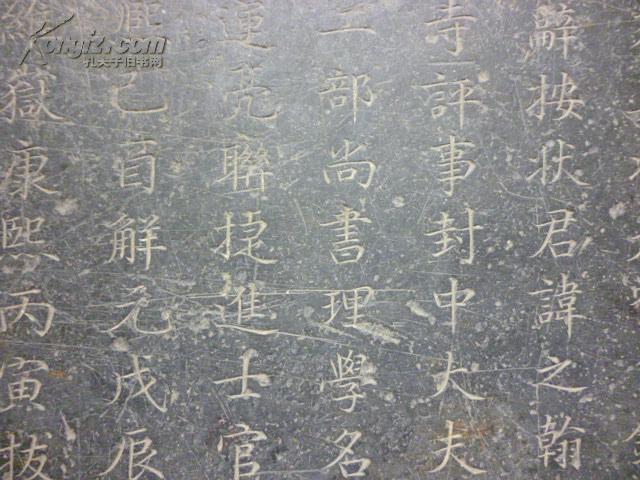 辭按狀君諱之翰
寺評事封中大夫
工部尚書理學名
運亮聯捷進士官
熙己酉解元戊辰
獄康熙丙寅拔
Kongfz.com
孔夫子旧书网